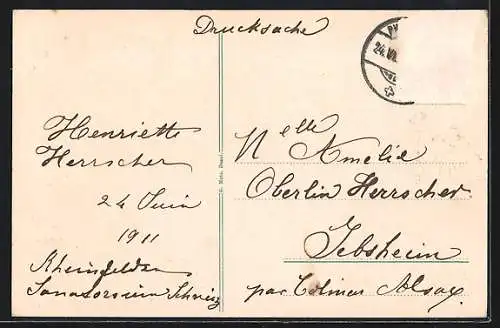 Drucksache
24.VI.
Henriette
Herrscher
24 Juin
1911
Rheinfelden
Sanatorium Schweiz
Nelle Amélie
Oberlin Herrscher
Jebsheim
par Colmar Alsace